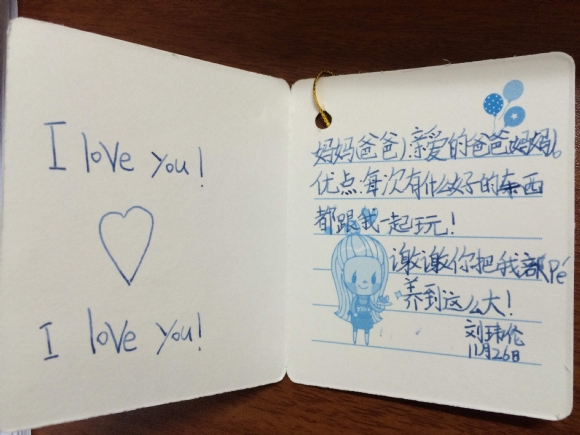 I love you!
I love you!
妈妈(爸爸):亲爱的爸爸妈妈。
优点:每次有什么好的东西
都跟我一起玩!
谢谢你把我部Pé
养到这么大!
刘玮伦
11月26日